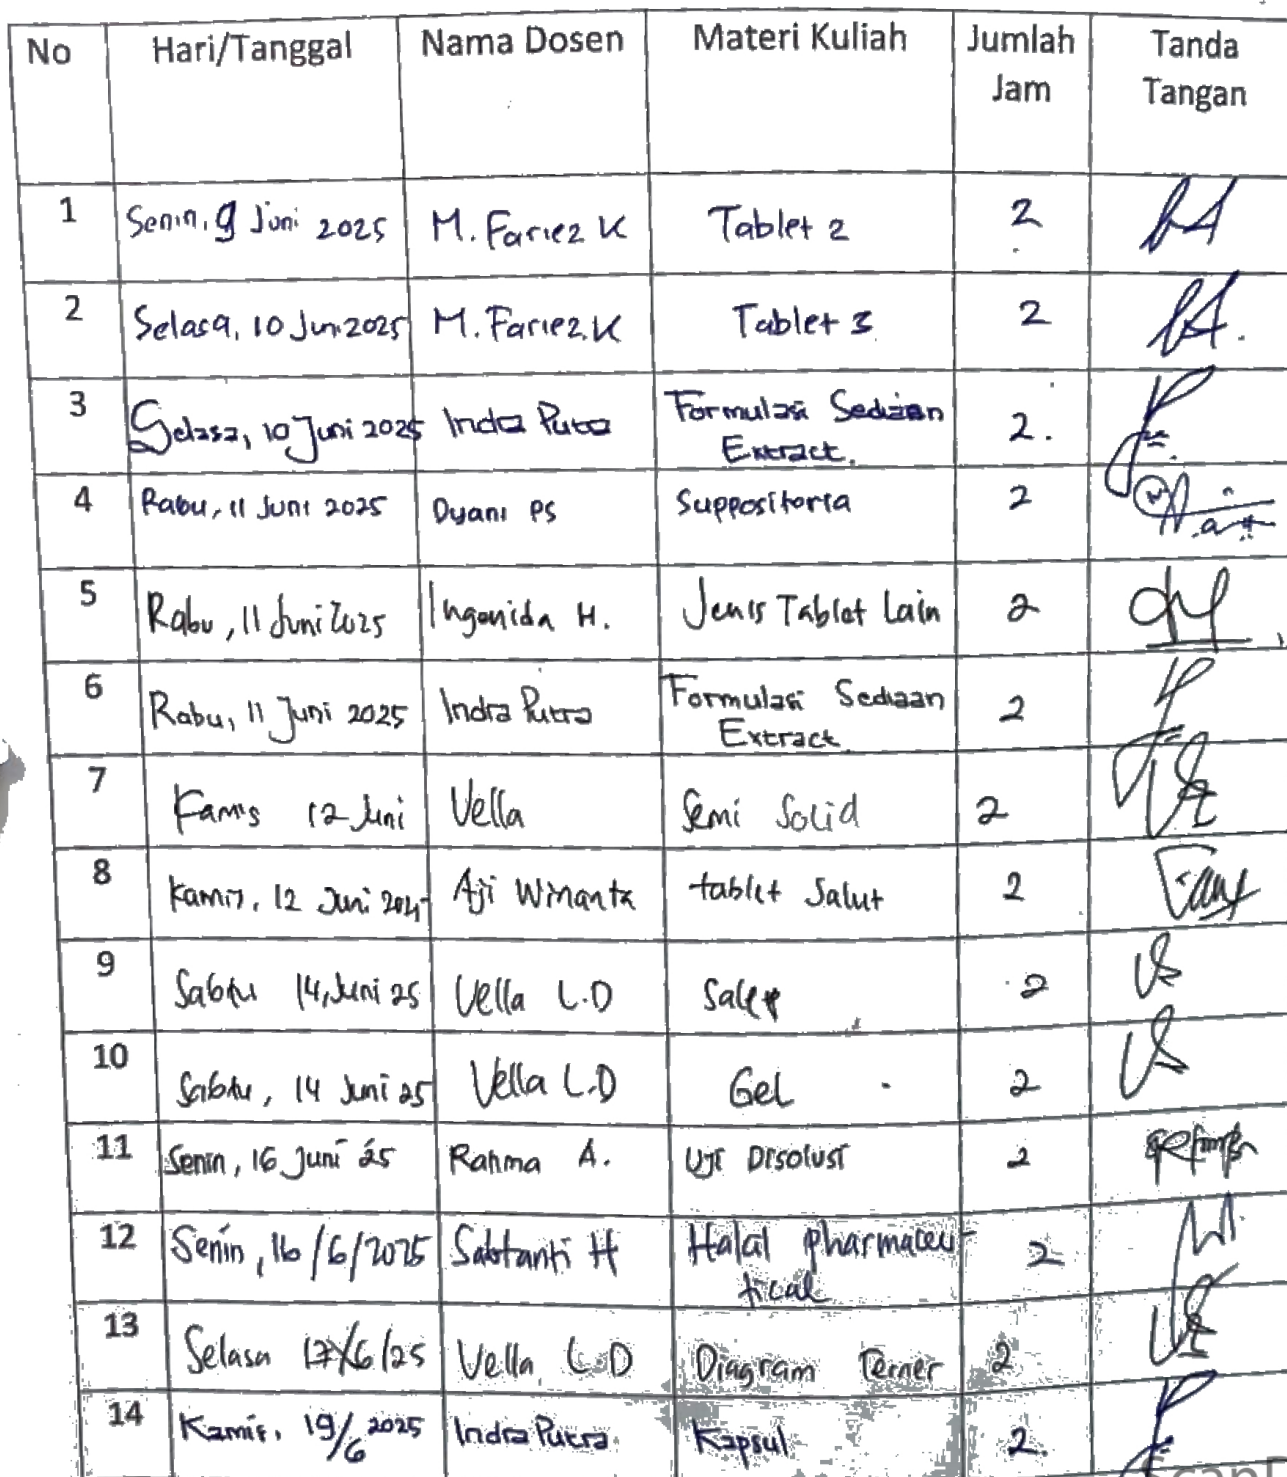 No Hari/Tanggal Nama Dosen Materi Kuliah Jumlah Jam Tanda Tangan
1 Senin, 9 Juni 2025 M. Fariez K Tablet 2 2
2 Selasa, 10 Jun 2025 M. Fariez. K Tablet 3 2
3 Selasa, 10 Juni 2025 Indra Putra Formulasi Sediaan Extract. 2.
4 Rabu, 11 Juni 2025 Dyani PS Suppositoria 2
5 Rabu, 11 Juni 2025 Ingenida H. Jenis Tablet Lain 2
6 Rabu, 11 Juni 2025 Indra Putra Formulasi Sediaan Extract. 2
7 Kamis 12 Juni Vella Semi Solid 2
8 Kamis, 12 Juni 2025 Aji Winanta tablet Salut 2
9 Sabtu 14, Juni 25 Vella L.D Salep 2
10 Sabtu, 14 Juni 25 Vella L.D Gel 2
11 Senin, 16 Juni 25 Rahma A. Uji Disolusi 2
12 Senin, 16/6/2025 Sabtanti H Halal pharmaceu- tical 2
13 Selasa 17/6/25 Vella L D Diagram Terner 2
14 Kamis, 19/6 2025 Indra Putra Kapsul 2.